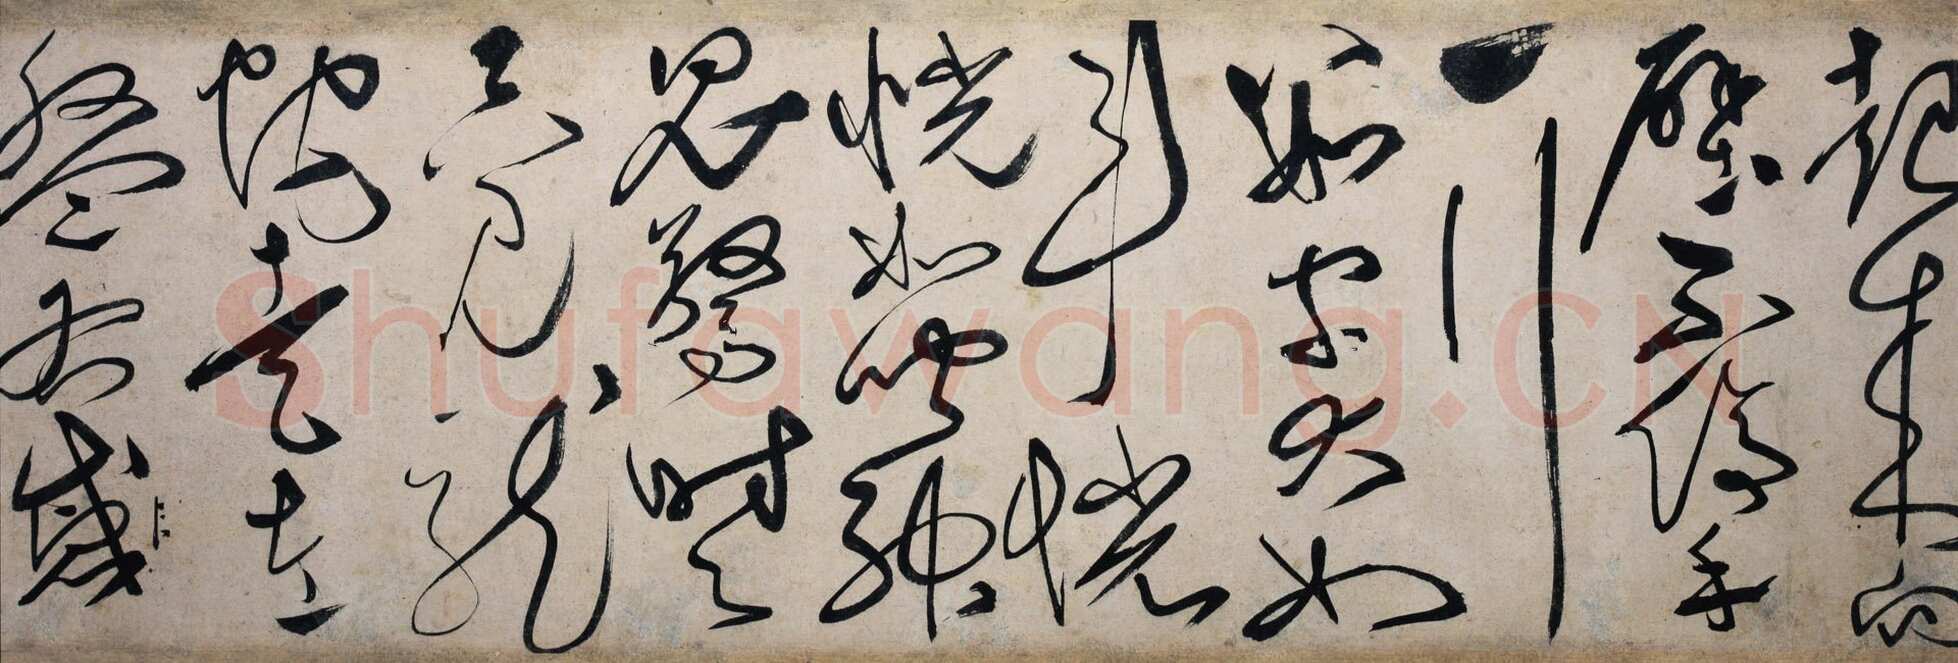 起來向
壁不停手
一行
數字大如
斗恍
恍如聞神
鬼驚時々
只見龍
蛇走左
盤右蹙
Shufawang.CN